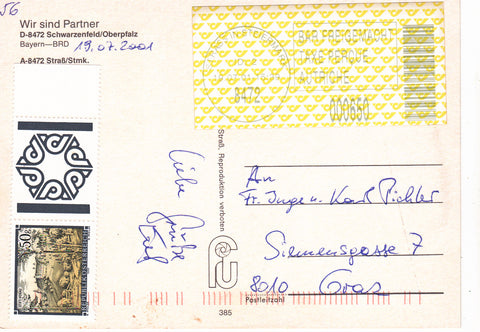 56
Wir sind Partner
D-8472 Schwarzenfeld/Oberpfalz
Bayern—BRD 19.07.2001
A-8472 Straß/Stmk.
BAR FREIGEMACHT
TAXE PERÇUE
AUTRICHE
8472
000650
Straß, Reproduktion verboten
Liebe Grüße
Karl
An
Fr. Inge u. Karl Pichler
Siemensgasse 7
8010 Graz
Postleitzahl
385